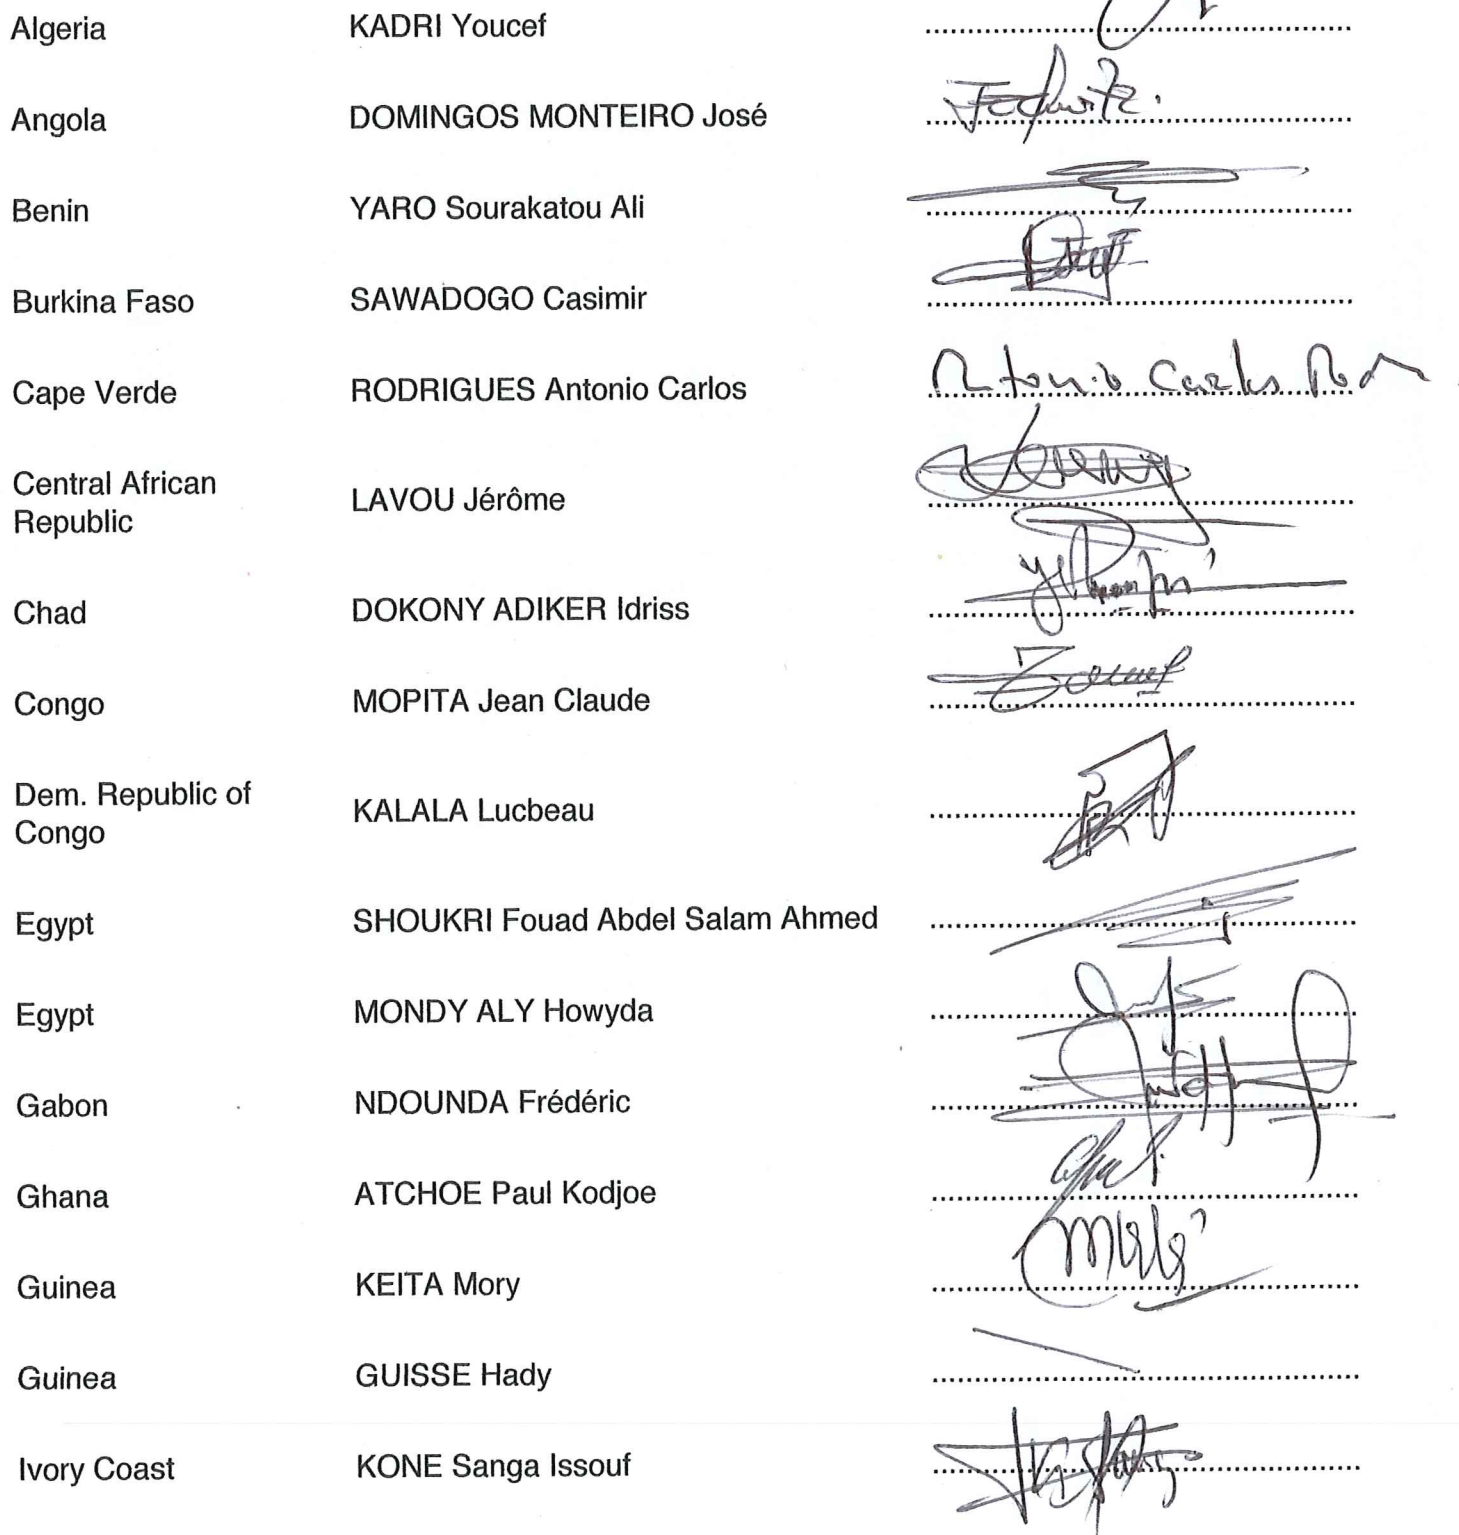 Algeria KADRI Youcef
Angola DOMINGOS MONTEIRO José
Benin YARO Sourakatou Ali
Burkina Faso SAWADOGO Casimir
Cape Verde RODRIGUES Antonio Carlos Antonio Carlos Rod
Central African
Republic
LAVOU Jérôme
Chad DOKONY ADIKER Idriss
Congo MOPITA Jean Claude
Dem. Republic of
Congo
KALALA Lucbeau
Egypt SHOUKRI Fouad Abdel Salam Ahmed
Egypt MONDY ALY Howyda
Gabon NDOUNDA Frédéric
Ghana ATCHOE Paul Kodjoe
Guinea KEITA Mory
Guinea GUISSE Hady
Ivory Coast KONE Sanga Issouf